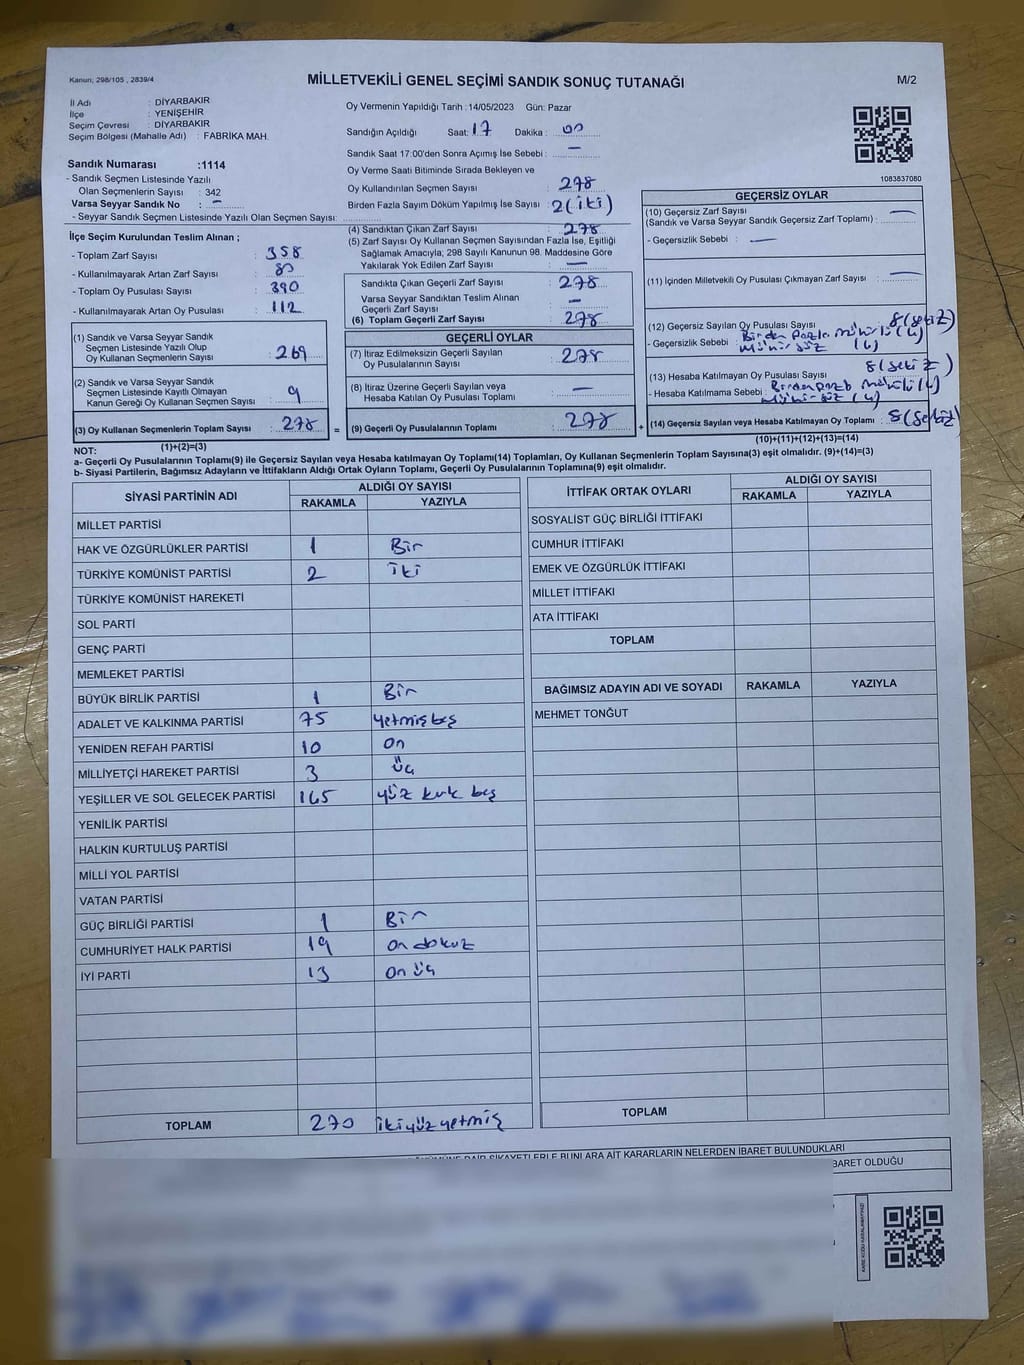 Kanun, 298/105 , 2839/4
MİLLETVEKİLİ GENEL SEÇİMİ SANDIK SONUÇ TUTANAĞI
M/2
İl Adı : DİYARBAKIR
İlçe : YENİŞEHİR
Seçim Çevresi : DİYARBAKIR
Seçim Bölgesi (Mahalle Adı) : FABRİKA MAH.
Sandık Numarası :1114
- Sandık Seçmen Listesinde Yazılı
Olan Seçmenlerin Sayısı : 342
Varsa Seyyar Sandık No : –
- Seyyar Sandık Seçmen Listesinde Yazılı Olan Seçmen Sayısı:
Oy Vermenin Yapıldığı Tarih : 14/05/2023 Gün: Pazar
Sandığın Açıldığı Saat: 17 Dakika : 00
Sandık Saat 17:00'den Sonra Açımış İse Sebebi : –
Oy Verme Saati Bitiminde Sırada Bekleyen ve
Oy Kullandırılan Seçmen Sayısı : 278
Birden Fazla Sayım Döküm Yapılmış İse Sayısı : 2 (iki)
1083837080
İlçe Seçim Kurulundan Teslim Alınan ;
- Toplam Zarf Sayısı : 358
- Kullanılmayarak Artan Zarf Sayısı : 80
- Toplam Oy Pusulası Sayısı : 390
- Kullanılmayarak Artan Oy Pusulası : 112
(1) Sandık ve Varsa Seyyar Sandık
Seçmen Listesinde Yazılı Olup
Oy Kullanan Seçmenlerin Sayısı : 269
(2) Sandık ve Varsa Seyyar Sandık
Seçmen Listesinde Kayıtlı Olmayan
Kanun Gereği Oy Kullanan Seçmen Sayısı : 9
(3) Oy Kullanan Seçmenlerin Toplam Sayısı : 278
(1)+(2)=(3)
(4) Sandıktan Çıkan Zarf Sayısı : 278
(5) Zarf Sayısı Oy Kullanan Seçmen Sayısından Fazla İse, Eşitliği
Sağlamak Amacıyla; 298 Sayılı Kanunun 98. Maddesine Göre
Yakılarak Yok Edilen Zarf Sayısı : –
Sandıkta Çıkan Geçerli Zarf Sayısı : 278
Varsa Seyyar Sandıktan Teslim Alınan
Geçerli Zarf Sayısı : –
(6) Toplam Geçerli Zarf Sayısı : 278
GEÇERLİ OYLAR
(7) İtiraz Edilmeksizin Geçerli Sayılan
Oy Pusulalarının Sayısı : 278
(8) İtiraz Üzerine Geçerli Sayılan veya
Hesaba Katılan Oy Pusulası Toplamı : –
= (9) Geçerli Oy Pusulalarının Toplamı : 278 +
GEÇERSİZ OYLAR
(10) Geçersiz Zarf Sayısı
(Sandık ve Varsa Seyyar Sandık Geçersiz Zarf Toplamı) : –
- Geçersizlik Sebebi : –
(11) İçinden Milletvekili Oy Pusulası Çıkmayan Zarf Sayısı : –
(12) Geçersiz Sayılan Oy Pusulası Sayısı : 8 (sekiz)
- Geçersizlik Sebebi : Birden Fazla mühürlü (4)
mühürsüz (4)
(13) Hesaba Katılmayan Oy Pusulası Sayısı : 8 (sekiz)
- Hesaba Katılmama Sebebi : Birden fazla mühürlü (4)
mühürsüz (4)
(14) Geçersiz Sayılan veya Hesaba Katılmayan Oy Toplamı : 8 (sekiz)
(10)+(11)+(12)+(13)=(14)
NOT:
a- Geçerli Oy Pusulalarının Toplamı(9) ile Geçersiz Sayılan veya Hesaba katılmayan Oy Toplamı(14) Toplamları, Oy Kullanan Seçmenlerin Toplam Sayısına(3) eşit olmalıdır. (9)+(14)=(3)
b- Siyasi Partilerin, Bağımsız Adayların ve İttifakların Aldığı Ortak Oyların Toplamı, Geçerli Oy Pusulalarının Toplamına(9) eşit olmalıdır.
SİYASİ PARTİNİN ADI ALDIĞI OY SAYISI
RAKAMLA YAZIYLA
MİLLET PARTİSİ
HAK VE ÖZGÜRLÜKLER PARTİSİ 1 Bir
TÜRKİYE KOMÜNİST PARTİSİ 2 iki
TÜRKİYE KOMÜNİST HAREKETİ
SOL PARTİ
GENÇ PARTİ
MEMLEKET PARTİSİ
BÜYÜK BİRLİK PARTİSİ 1 Bir
ADALET VE KALKINMA PARTİSİ 75 yetmiş beş
YENİDEN REFAH PARTİSİ 10 on
MİLLİYETÇİ HAREKET PARTİSİ 3 üç
YEŞİLLER VE SOL GELECEK PARTİSİ 145 yüz kırk beş
YENİLİK PARTİSİ
HALKIN KURTULUŞ PARTİSİ
MİLLİ YOL PARTİSİ
VATAN PARTİSİ
GÜÇ BİRLİĞİ PARTİSİ 1 Bir
CUMHURİYET HALK PARTİSİ 19 on dokuz
İYİ PARTİ 13 on üç
TOPLAM 270 ikiyüzyetmiş
İTTİFAK ORTAK OYLARI ALDIĞI OY SAYISI
RAKAMLA YAZIYLA
SOSYALİST GÜÇ BİRLİĞİ İTTİFAKI
CUMHUR İTTİFAKI
EMEK VE ÖZGÜRLÜK İTTİFAKI
MİLLET İTTİFAKI
ATA İTTİFAKI
TOPLAM
BAĞIMSIZ ADAYIN ADI VE SOYADI RAKAMLA YAZIYLA
MEHMET TONĞUT
TOPLAM
ŞİKAYETLERLE BUNLARA AİT KARARLARIN NELERDEN İBARET BULUNDUKLARI
BARET OLDUĞU